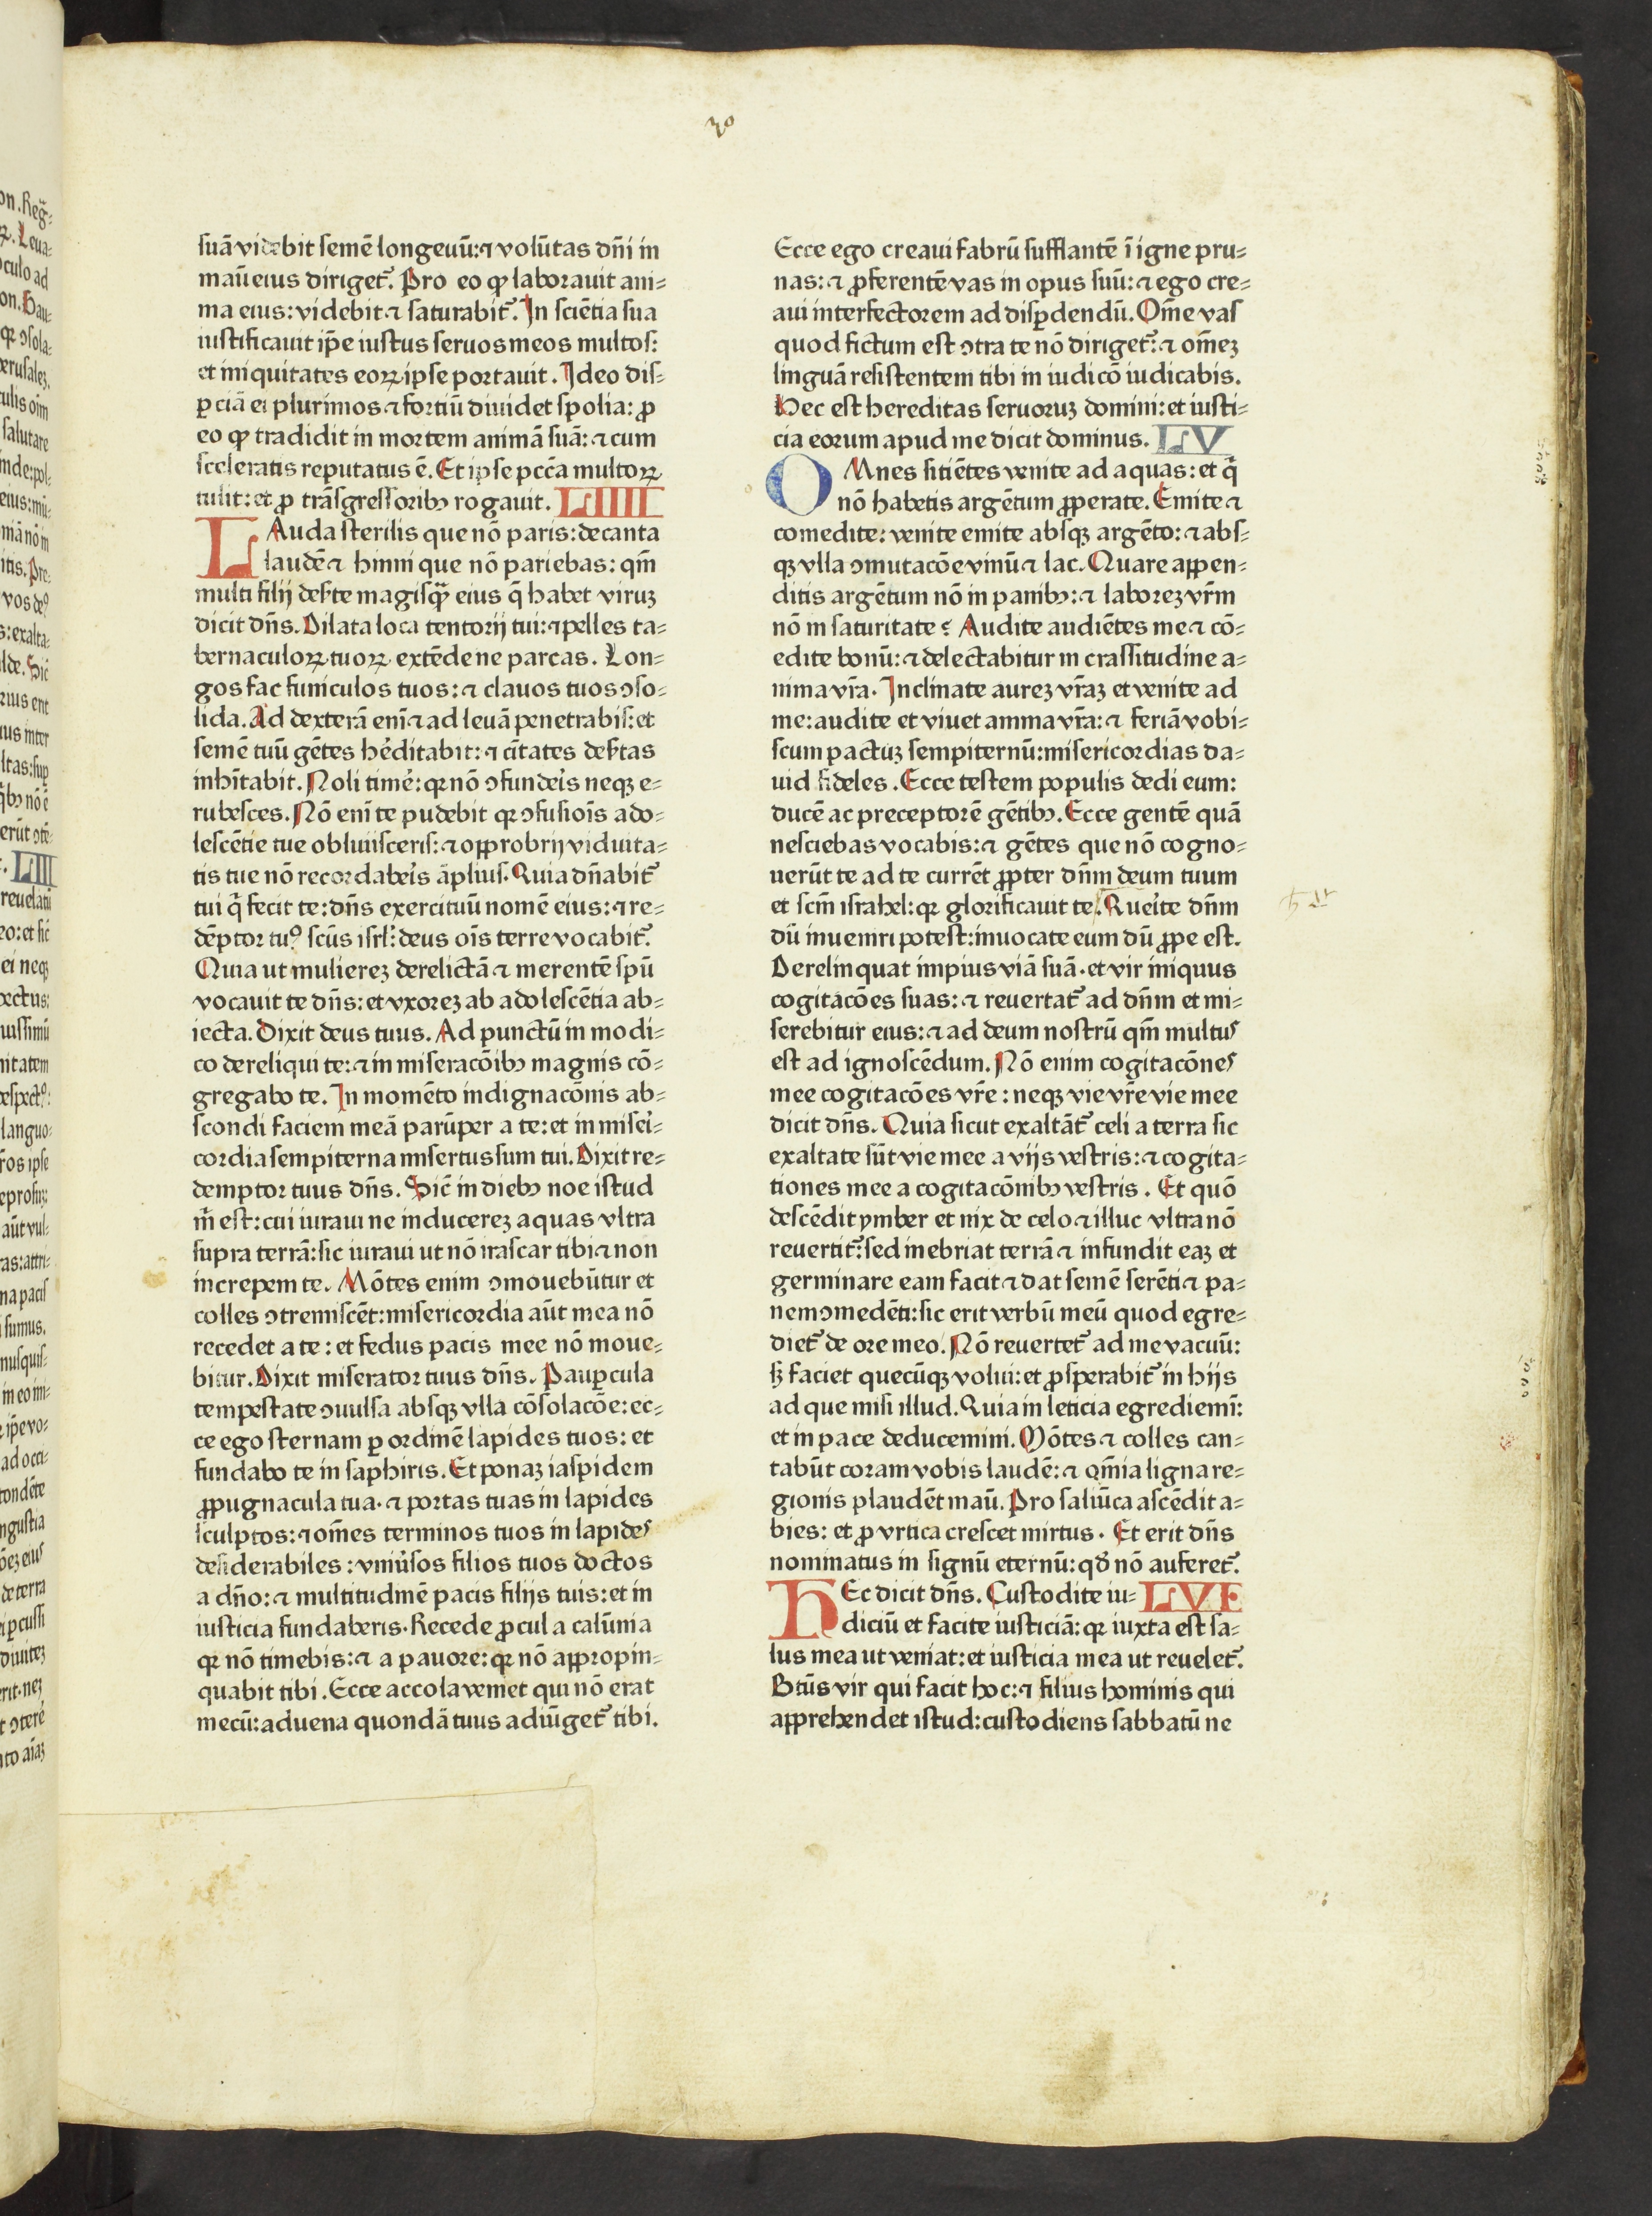 30
suā videbit semē longeuū: ⁊ volūtas dn̄i in
manū eius diriget᷑. Pro eo ꝙ laborauit ani⸗
ma eius: videbit ⁊ saturabit᷑. In sciētia sua
iustificauit ip̄e iustus seruos meos multos:
et iniquitates eoꝝ ipse portauit. Ideo dis⸗
ꝑciā ei plurimos ⁊ fortiū diuidet spolia: ꝓ
eo ꝙ tradidit in mortem animā suā: ⁊ cum
sceleratis reputatus ē. Et ipse pccā multoꝝ
tulit: et ꝓ trāsgressoribꝰ rogauit. LIIII
LAuda sterilis que nō paris: decanta
laudē ⁊ hinni que nō pariebas: qm̄
multi filij deẜte magisꝙ̄ eius q̄ habet viruꝫ
dicit dn̄s. Dilata loca tentorij tui: ⁊ pelles ta⸗
bernaculoꝝ tuoꝝ extēde ne parcas. Lon⸗
gos fac funiculos tuos: ⁊ clauos tuos ꝯso⸗
lida. Ad dexterā enī ⁊ ad leuā penetrabis: et
semē tuū gētes he᷑ditabit: ⁊ cītates deẜtas
inhītabit. Noli time᷑: qꝛ nō ꝯfunde᷑is neqꝫ e⸗
rubesces. Nō enī te pudebit qꝛ ꝯfusiōis ado⸗
lescētie tue obliuisceris: ⁊ opprobrij viduita⸗
tis tue nō recordabe᷑is āplius. Quia dn̄abit᷑
tui q̄ fecit te: dn̄s exercituū nomē eius: ⁊ re⸗
dēptor tuꝰ scūs isrl̄: deus oīs terre vocabit᷑.
Quia ut muliereꝫ derelictā ⁊ merentē spū
vocauit te dn̄s: et vxoreꝫ ab adolescētia ab⸗
iecta. Dixit deus tuus. Ad punctū in modi⸗
co dereliqui te: ⁊ in miseracōibꝰ magnis cō⸗
gregabo te. In momēto indignacōnis ab⸗
scondi faciem meā parūper a te: et in mise᷑i⸗
cordia sempiterna misertus sum tui. Dixit re⸗
demptor tuus dn̄s. Sic̄ in diebꝰ noe istud
m̄ est: cui iuraui ne inducereꝫ aquas vltra
supra terrā: sic iuraui ut nō irascar tibi ⁊ non
increpem te. Mōtes enim ꝯmouebūtur et
colles ꝯtremiscēt: misericordia aūt mea nō
recedet a te: et fedus pacis mee nō moue⸗
bitur. Dixit miserator tuus dn̄s. Pauꝑcula
tempestate ꝯuulsa absqꝫ vlla cōsolacōe: ec⸗
ce ego sternam ꝑ ordinē lapides tuos: et
fundabo te in saphiris. Et ponaꝫ iaspidem
ꝓpugnacula tua. ⁊ portas tuas in lapides
sculptos: ⁊ om̄es terminos tuos in lapides
desiderabiles: vniu᷑sos filios tuos doctos
a dn̄o: ⁊ multitudinē pacis filijs tuis: et in
iusticia fundaberis. Recede ꝓcul a calūnia
qꝛ nō timebis: ⁊ a pauore: qꝛ nō appropin⸗
quabit tibi. Ecce accola veniet qui nō erat
mecū: aduena quondā tuus adiūget᷑ tibi.
Ecce ego creaui fabrū sufflantē ī igne pru⸗
nas: ⁊ ꝓferentē vas in opus suū: ⁊ ego cre⸗
aui interfectorem ad disꝑdendū. Om̄e vas
quod fictum est ꝯtra te nō diriget᷑: ⁊ om̄eꝫ
linguā resistentem tibi in iudicō iudicabis.
Hec est hereditas seruoruꝫ domini: et iusti⸗
cia eorum apud me dicit dominus. LV
OMnes sitiētes venite ad aquas: et q̄
nō habetis argētum ꝓperate. Emite ⁊
comedite: venite emite absqꝫ argēto: ⁊ abs⸗
qꝫ vlla ꝯmutacōe vinū ⁊ lac. Quare appen⸗
ditis argētum nō in panibꝰ: ⁊ laboreꝫ vr̄m
nō in saturitate? Audite audiētes me ⁊ cō⸗
edite bonū: ⁊ delectabitur in crassitudine a⸗
nima vr̄a. Inclinate aureꝫ vr̄aꝫ et venite ad
me: audite et viuet anima vr̄a: ⁊ feriā vobi⸗
scum pactuꝫ sempiternū: misericordias da⸗
uid fideles. Ecce testem populis dedi eum:
ducē ac preceptorē gētibꝰ. Ecce gentē quā
nesciebas vocabis: ⁊ gētes que nō cogno⸗
uerūt te ad te currēt ꝓpter dn̄m deum tuum
et scm̄ israhel: qꝛ glorificauit te. Que᷑ite dn̄m
dū inueniri potest: inuocate eum dū ꝓpe est.
Derelinquat impius viā suā. et vir iniquus
cogitacōes suas: ⁊ reuertat᷑ ad dn̄m et mi⸗
serebitur eius: ⁊ ad deum nostrū qm̄ multus
est ad ignoscēdum. Nō enim cogitacōnes
mee cogitacōes vr̄e: neqꝫ vie vr̄e vie mee
dicit dn̄s. Quia sicut exaltāt᷑ celi a terra sic
exaltate sūt vie mee a vijs vestris: ⁊ cogita⸗
tiones mee a cogitacōnibꝰ vestris. Et quō
descēdit ymber et nix de celo ⁊ illuc vltra nō
reuertit᷑: sed inebriat terrā ⁊ infundit eaꝫ et
germinare eam facit ⁊ dat semē serēti ⁊ pa⸗
nem ꝯmedēti: sic erit verbū meū quod egre⸗
diet᷑ de ore meo. Nō reuertet᷑ ad me vacuū:
sꝫ faciet quecūqꝫ volui: et ꝓsperabit᷑ in hijs
ad que misi illud. Quia in leticia egrediemī:
et in pace deducemini. Mōtes ⁊ colles can⸗
tabūt coram vobis laudē: ⁊ om̄ia ligna re⸗
gionis plaudēt manū. Pro saliūca ascēdit a⸗
bies: et ꝓ vrtica crescet mirtus. Et erit dn̄s
nominatus in signū eternū: qđ nō auferet᷑.
HEc dicit dn̄s. Custodite iu⸗ LVI
diciū et facite iusticiā: qꝛ iuxta est sa⸗
lus mea ut veniat: et iusticia mea ut reuelet᷑.
Btūs vir qui facit hoc: ⁊ filius hominis qui
apprehendet istud: custodiens sabbatū ne